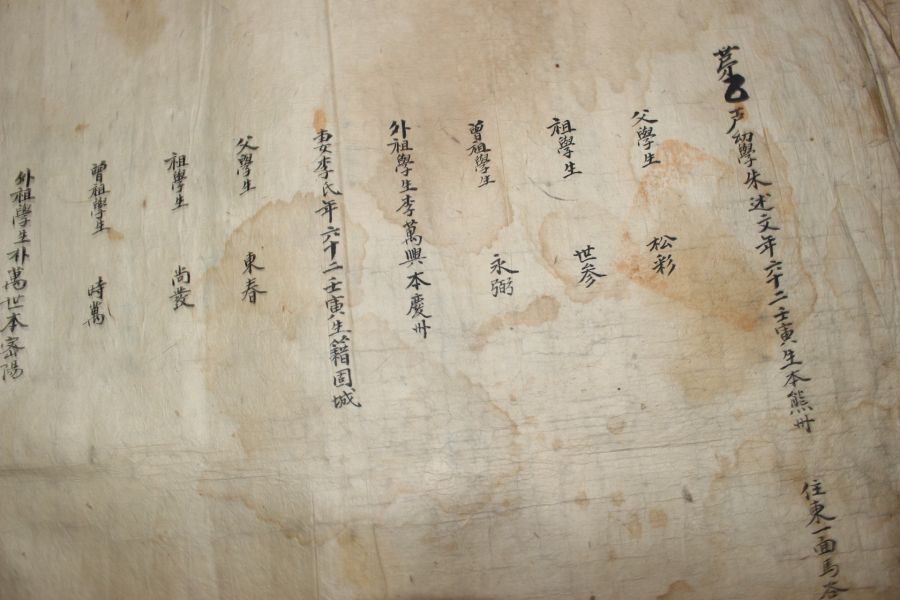 戶幼學朱述文年六十二壬寅生本熊州
住東一面馬
父學生 松彩
祖學生 世参
曾祖學生 永弼
外祖學生李萬興本慶州
妻李氏年六十二壬寅生籍固城
父學生 東春
祖學生 尚發
曾祖學生 時萬
外祖學生朴萬世本密陽